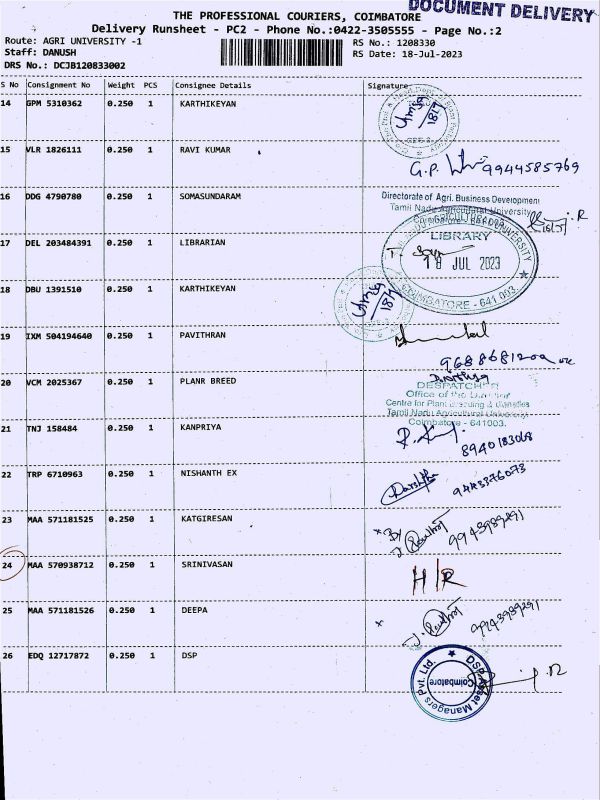 DOCUMENT DELIVERY
THE PROFESSIONAL COURIERS, COIMBATORE
Delivery Runsheet - PC2 - Phone No.:0422-3505555 - Page No.:2
Route: AGRI UNIVERSITY -1
RS No.: 1208330
Staff: DANUSH
RS Date: 18-Jul-2023
DRS No.: DCJB120833002
S No Consignment No Weight PCS Consignee Details Signature
14 GPM 5310362 0.250 1 KARTHIKEYAN
15 VLR 1826111 0.250 1 RAVI KUMAR
G.P. 9944585769
16 DDG 4790780 0.250 1 SOMASUNDARAM
Directorate of Agri. Business Development
Tamil Nadu Agricultural University
17 DEL 203484391 0.250 1 LIBRARIAN
LIBRARY
18 JUL 2023
COIMBATORE - 641 003.
18 DBU 1391510 0.250 1 KARTHIKEYAN
19 IXM 504194640 0.250 1 PAVITHRAN
20 VCM 2025367 0.250 1 PLANR BREED
DESPATCHER
Office of the Director
Centre for Plant Breeding & Genetics
Tamil Nadu Agricultural University
Coimbatore - 641003.
21 TNJ 158484 0.250 1 KANPRIYA
8940183068
22 TRP 6710963 0.250 1 NISHANTH EX
9443376073
23 MAA 571181525 0.250 1 KATGIRESAN
9943939291
24 MAA 570938712 0.250 1 SRINIVASAN
H/R
25 MAA 571181526 0.250 1 DEEPA
9943939291
26 EDQ 12717872 0.250 1 DSP
DSP Asset Managers Pvt. Ltd.
Coimbatore